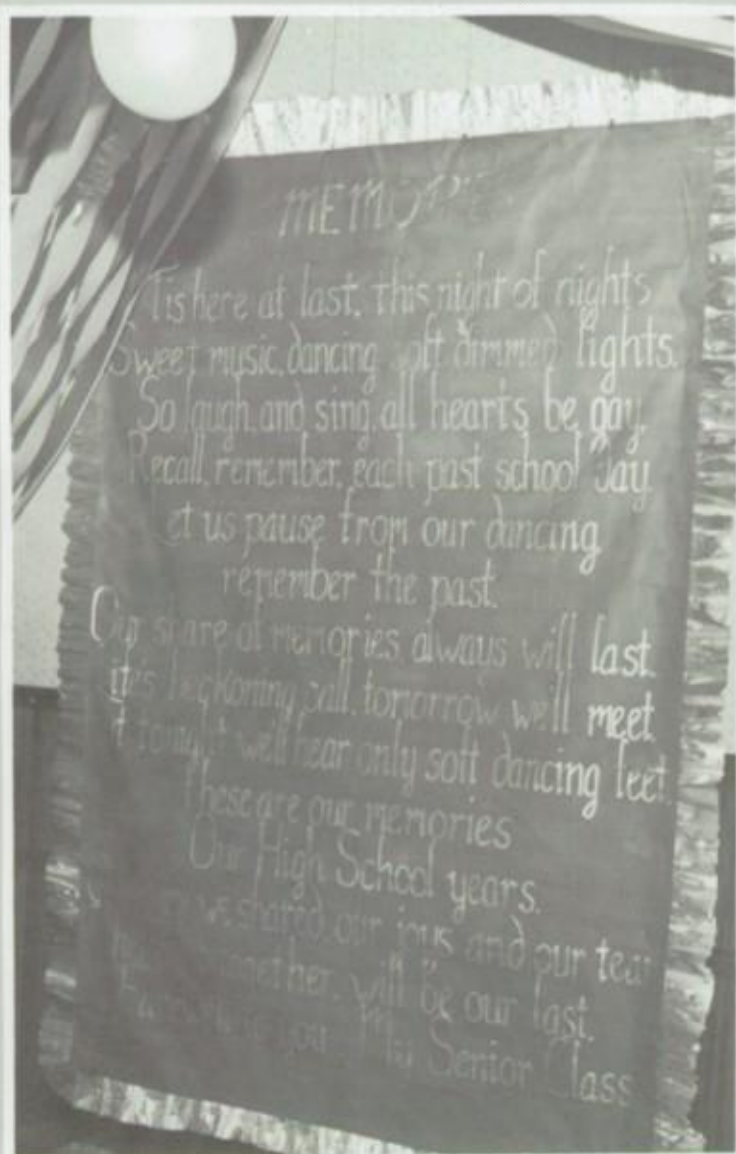 'Tis here at last, this night of nights
Sweet music, dancing, soft dimmed lights.
So laugh and sing, all hearts be gay,
Recall, remember, each past school day
Let us pause from our dancing,
remember the past.
Our share of memories always will last.
beckoning call, tomorrow we'll meet.
tonight we'll hear only soft dancing feet.
These are our memories
Our High School years.
we shared, our joys and our tears
together, will be our last.
to you My Senior Class